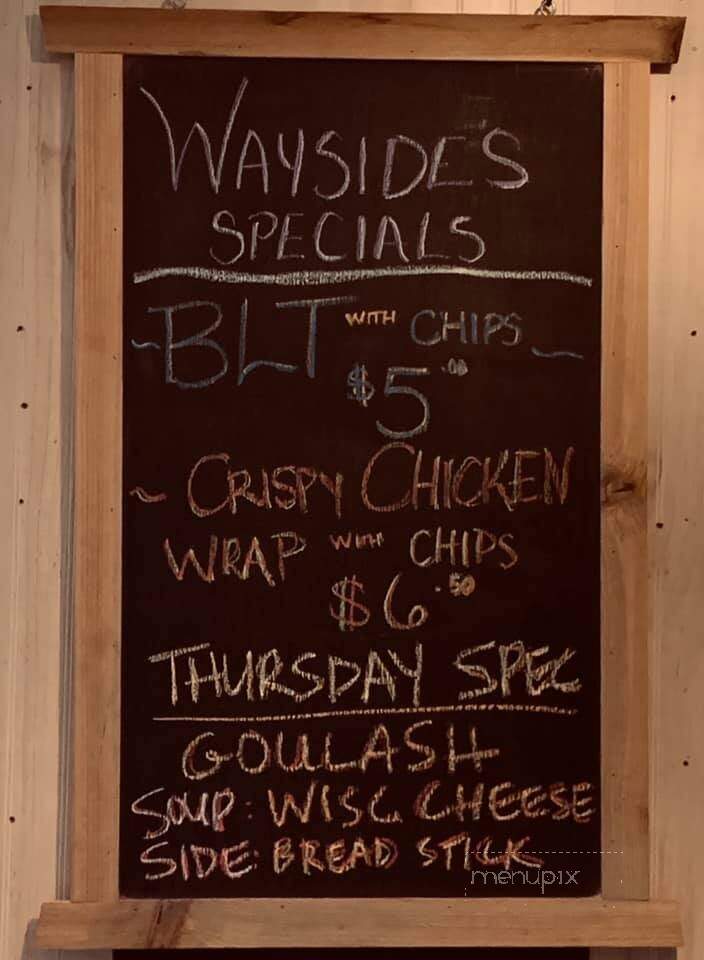 WAYSIDES
SPECIALS
~BLT WITH CHIPS~
$5.00
~ CRISPY CHICKEN
WRAP WITH CHIPS
$6.50
THURSDAY SPEC
GOULASH
SOUP: WISC. CHEESE
SIDE: BREAD STICK
menupix